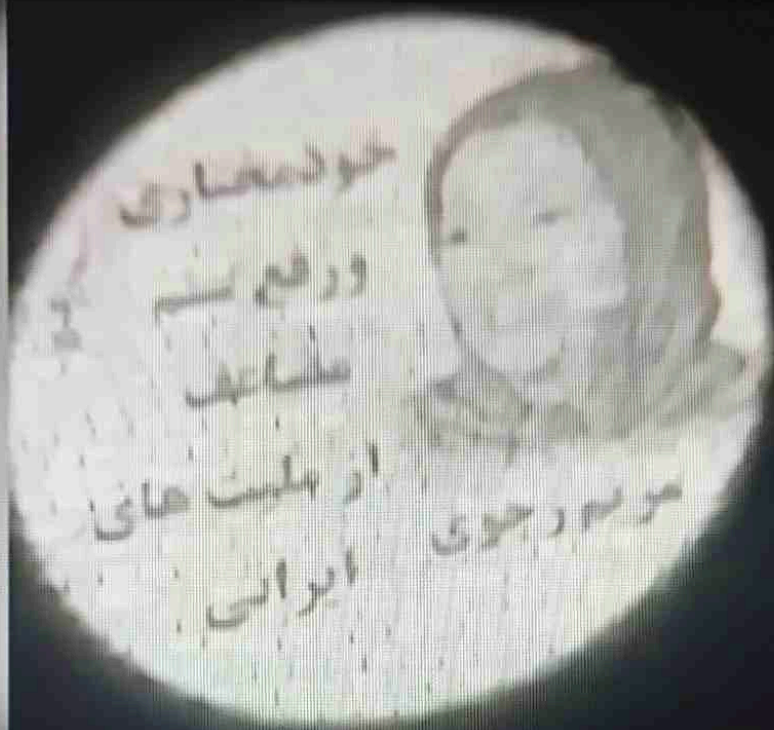 خودمختاری
و رفع ستم
مضاعف
از ملیت های
ایرانی
مریم رجوی